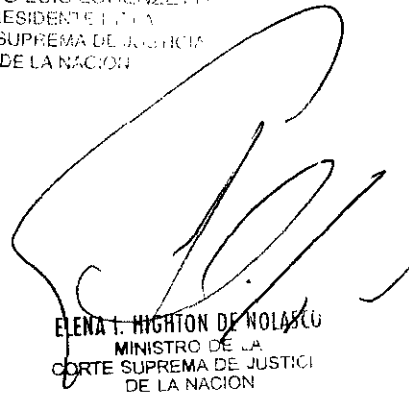 SUPREMA DE JUSTICIA
DE LA NACION
ELENA I. HIGHTON DE NOLASCO
MINISTRO DE LA
CORTE SUPREMA DE JUSTICI
DE LA NACION